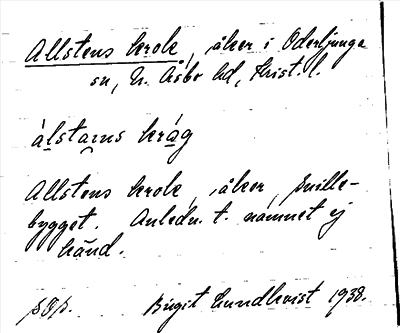 Allstens krok, åker i Oderljunga
sn, N. Åsbo hd, Krist. l.
álstams kråg
Allstens krok, åker, Snille-
bygget. Anledn. t. namnet ej
känd.
Birgit Lundkvist 1938.